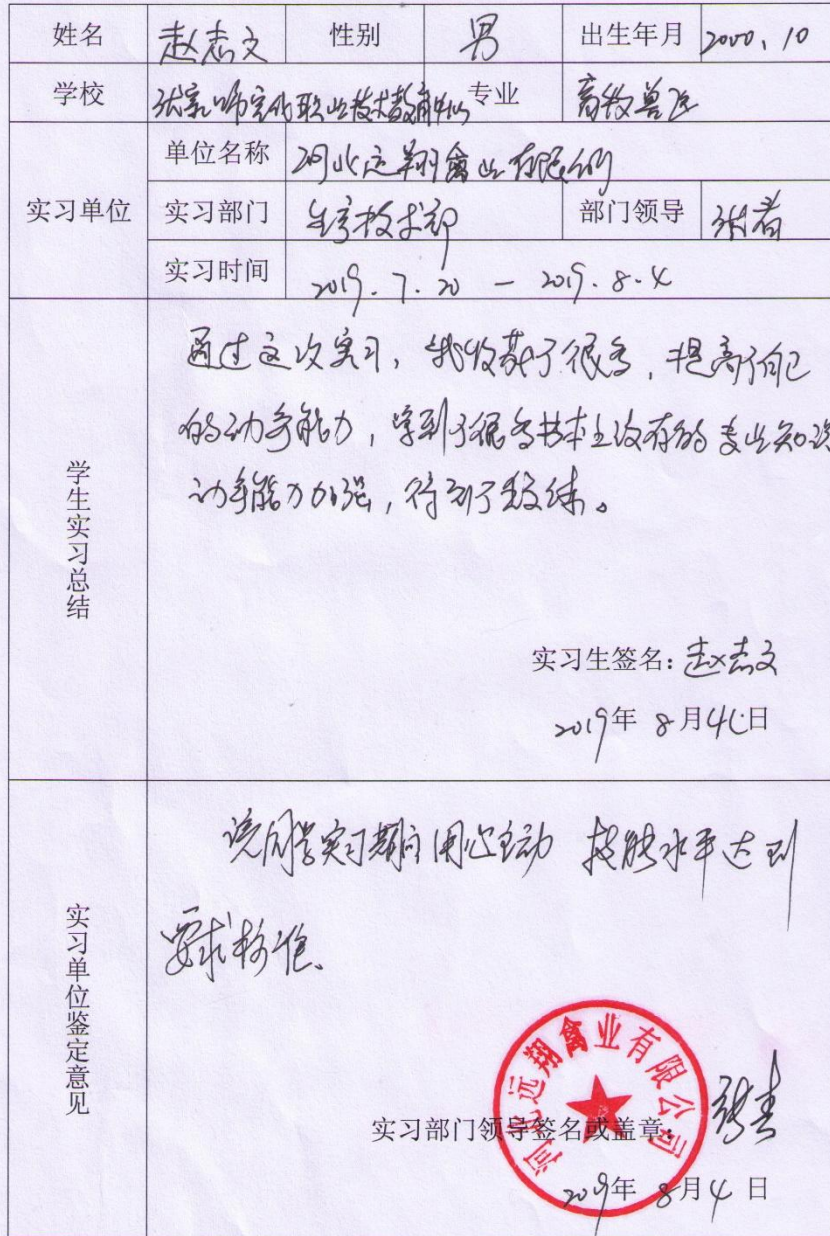 姓名 赵志文 性别 男 出生年月 2000、10
学校 张家口市宣化职业技术教育中心 专业 畜牧兽医
实习单位
单位名称 河北远翔禽业有限公司
实习部门 生产技术部 部门领导
实习时间 2019.7.20 — 2019.8.4
学生实习总结
通过这次实习，我收获了很多，提高了自己
的动手能力，学到了很多书本上没有的专业知识
动手能力加强，得到了锻炼。
实习生签名：赵志文
2019年 8月4日
实习单位鉴定意见
该同学实习期间用心主动 技能水平达到
要求标准、
河北远翔禽业有限公司
实习部门领导签名或盖章：
2019年 8月4日